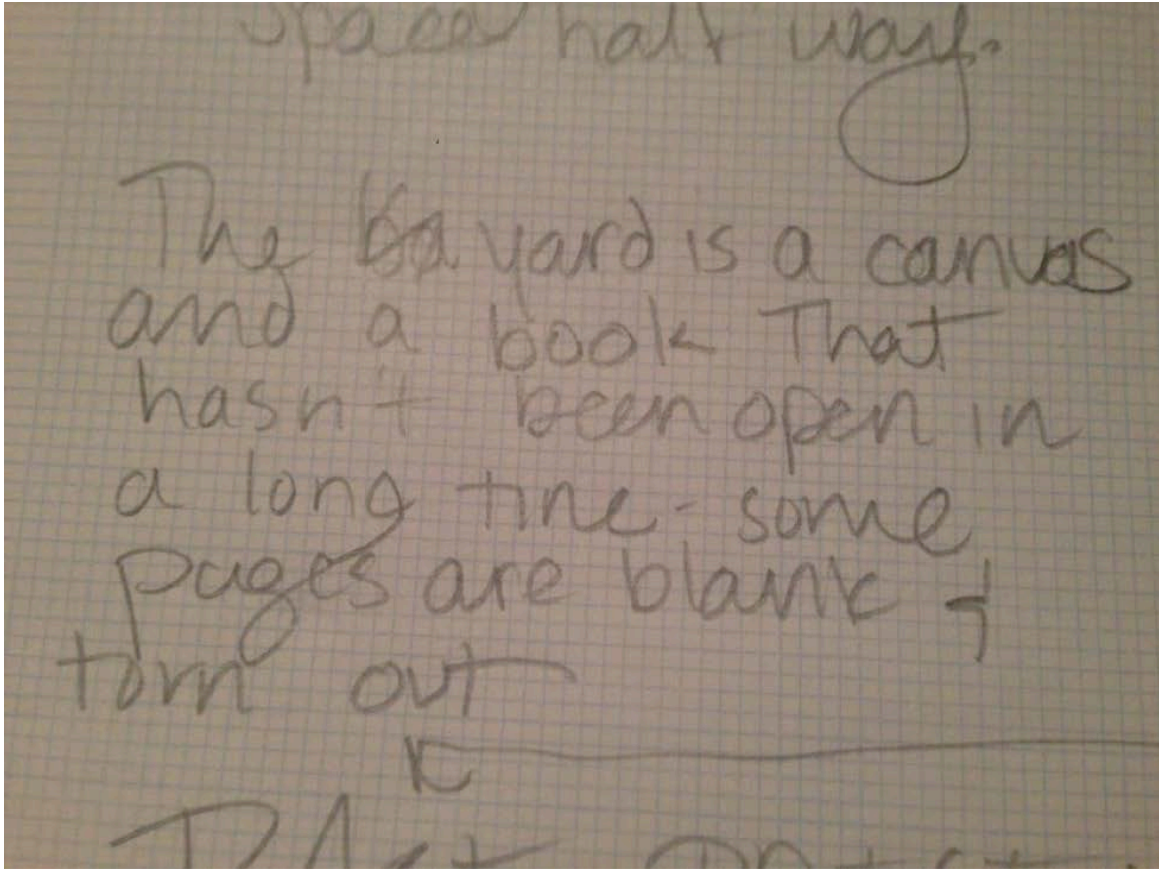 space half way.
The ba yard is a canvas
and a book That
hasn't been open in
a long time - some
pages are blank +
torn out